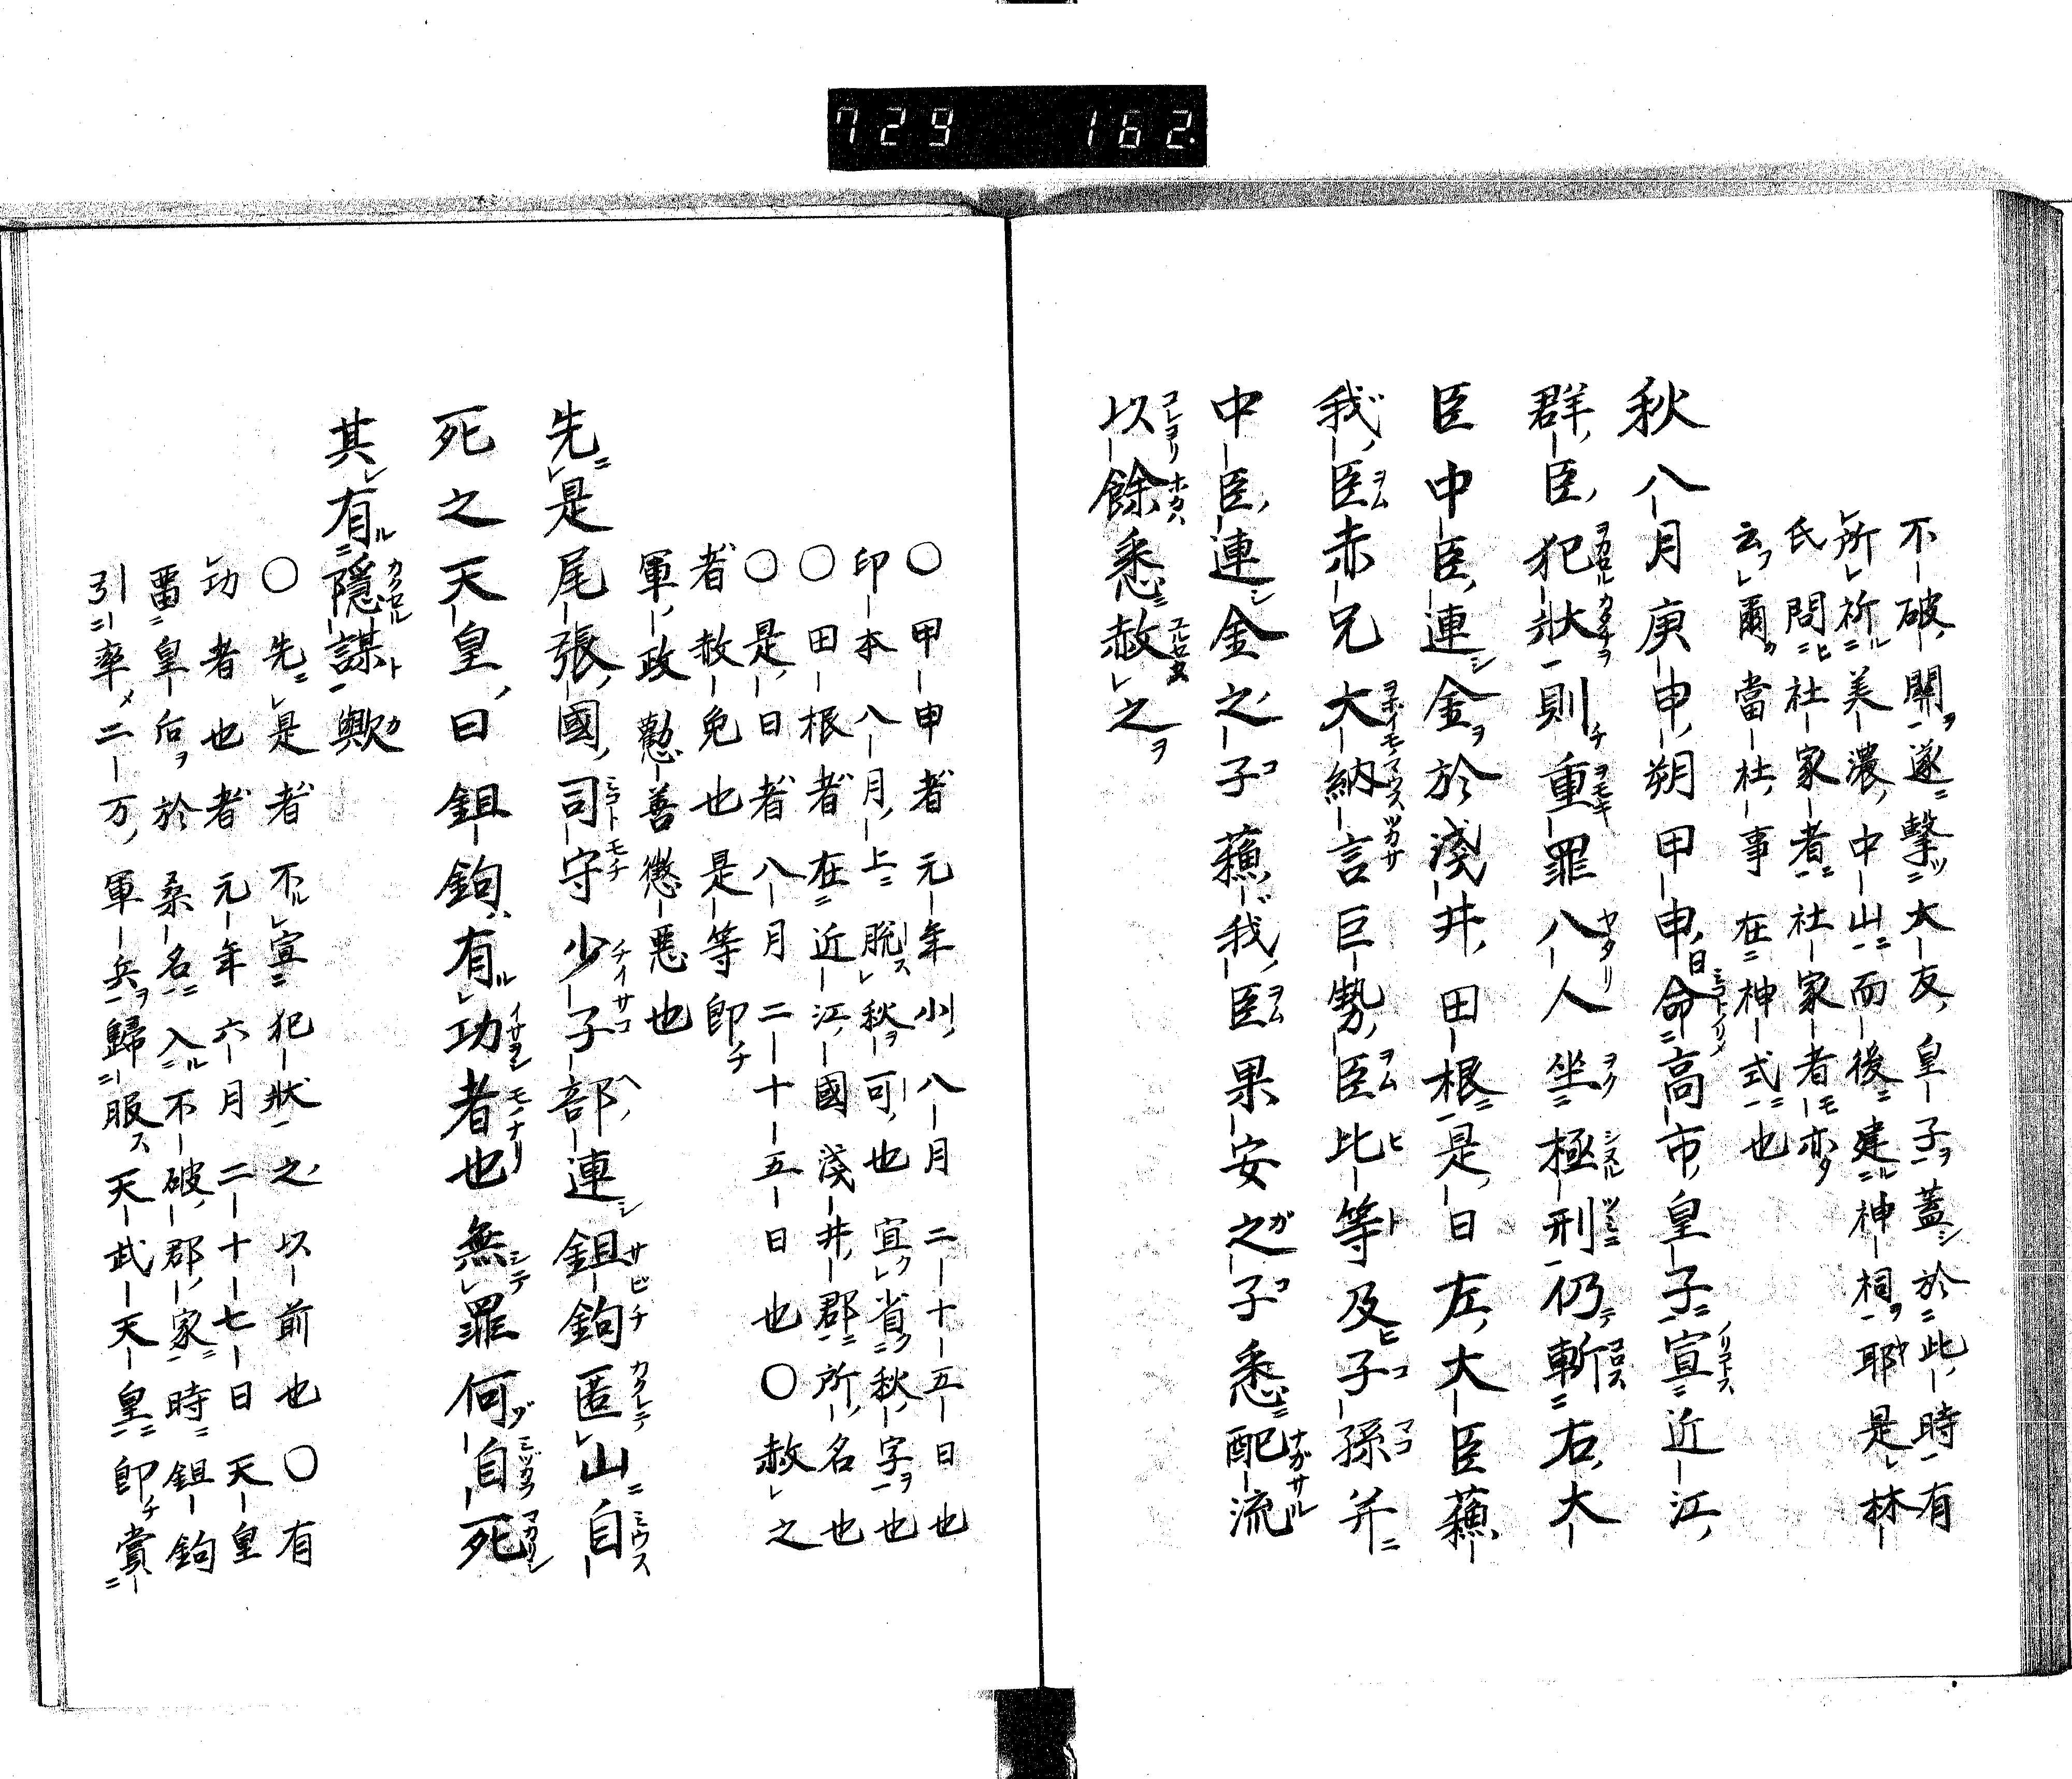 729 162.
不破関遂撃大友皇子蓋於此時有
所祈美濃中山而後建神祠耶是林
氏問社家者社家者亦
云爾當社事在神式也
秋八月庚申朔甲申日命高市皇子宣近江
群臣犯狀則重罪八人坐極刑仍斬右大
臣中臣連金於淺井田根是日左大臣蘓
我臣赤兄大納言巨勢臣比等及子孫并
中臣連金之子蘓我臣果安之子悉配流
以餘悉赦之
〇甲申者元年小八月二十五日也
印本八月上脱秋可也宜省秋字也
〇田根者在近江國淺井郡所名也
〇是日者八月二十五日也〇赦之
者赦免也是等即
軍政勸善懲惡也
先是尾張國司守少子部連鉏鉤匿山自
死之天皇曰鉏鉤有功者也無罪何自死
其有隱謀歟
〇先是者不宣犯狀之以前也〇有
功者也者元年六月二十七日天皇
畱皇后於桑名入不破郡家時鉏鉤
引率二万軍兵歸服天武天皇即賞